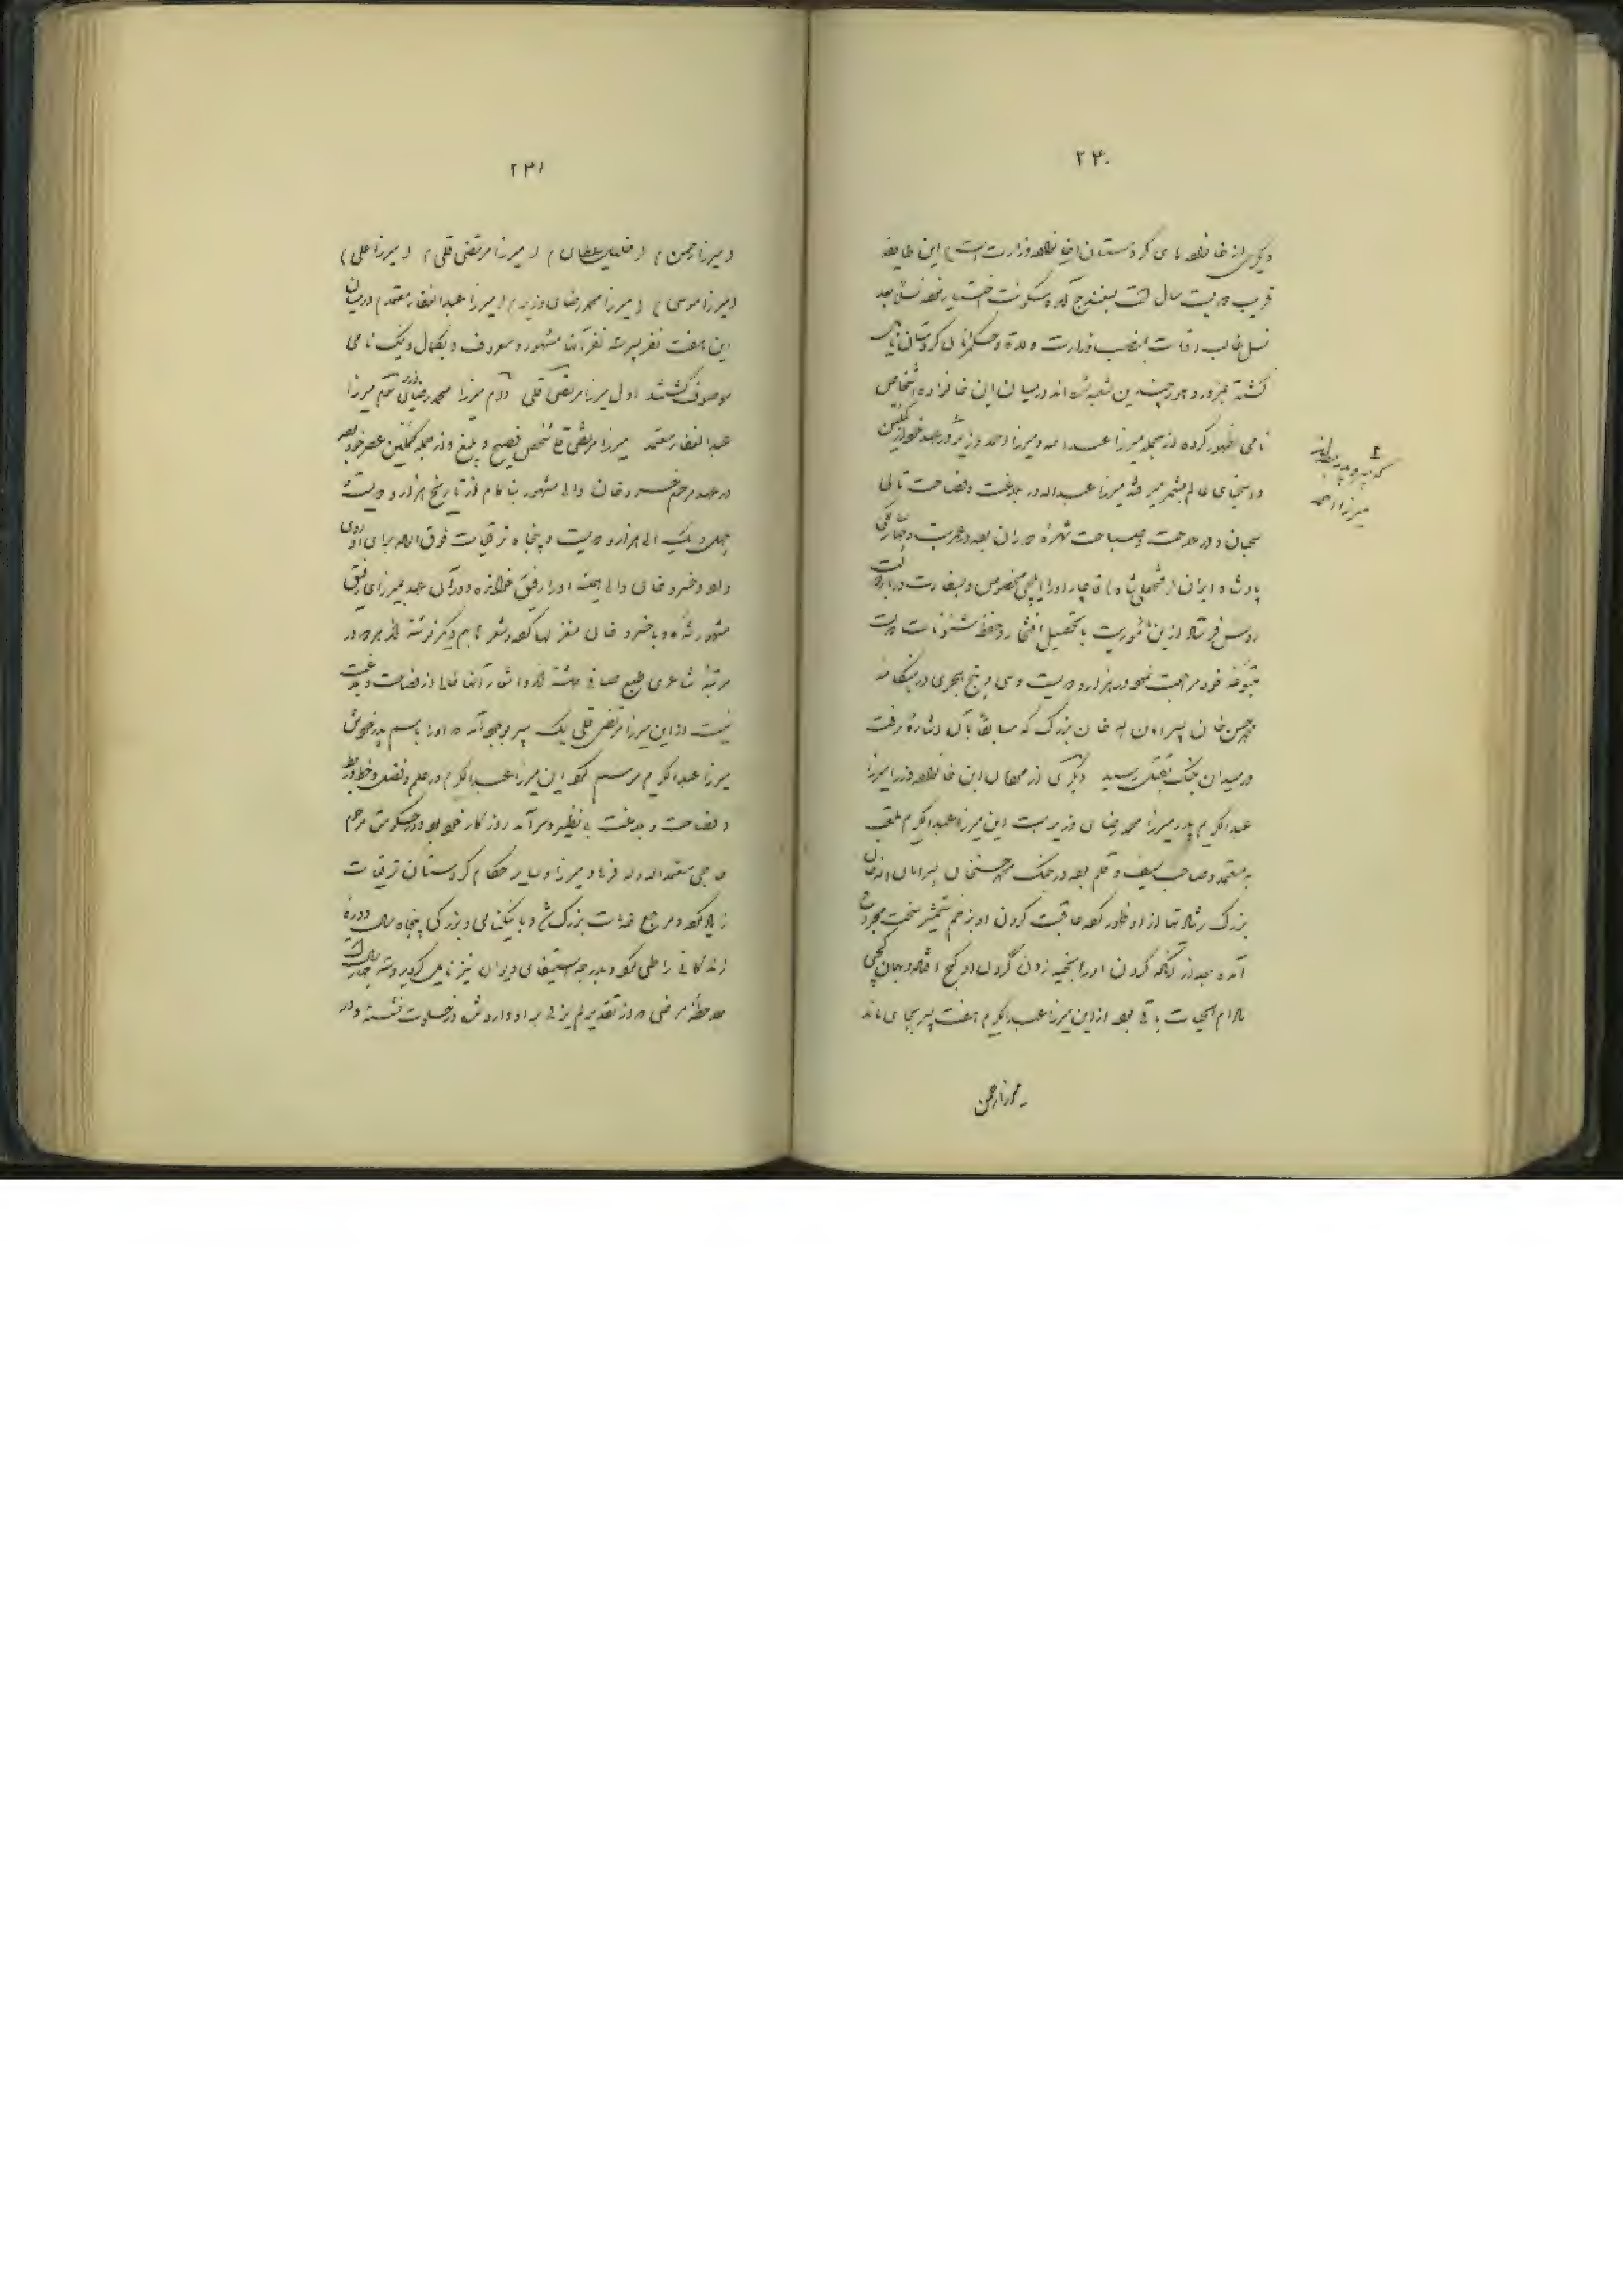 ۲۳۰
دیگری از خانوادهای کردستان (خانواده وزارت است) این طایفه
قریب دویست سال است بسنندج آمده سکونت اختیار نموده نسلاً بعد
نسل غالب اوقات بمنصب وزارت ولاة و حکمرانان کردستان نایل
گشته بمرور دهور چندین شعبه شده اند در میان این خانواده اشخاص
نامی ظهور کرده از جمله میرزا عبدالله و میرزا احمد وزیر در عهد خود از مکملین
و اسخیای عالم بشمار میرفتند میرزا عبدالله در بلاغت و فصاحت ثانی
سحبان و در ملاحت و صباحت شهرهٔ دوران بوده
پادشاه ایران (فتحعلی شاه) قاجار او را ایلچی مخصوص و بسفارت دربار دولت
روس فرستاد از این مأموریت با تحصیل افتخار و حفظ شئونات دولت
متبوعه خود مراجعت نمود در هزار و دویست و سی و پنج هجری در هنگامه
محمد حسن خان پسر امان الله خان بزرگ که سابقاً بآن اشاره رفت
در میدان جنگ بقتل رسید دیگری از رجال این خانواده وزرا میرزا
عبدالکریم پدر میرزا محمد رضای وزیر است این میرزا عبدالکریم ملقب
به معتمد و صاحب سیف و قلم بوده در جنگ محمد حسنخان پسر امان الله خان
بزرگ رشادتها از او ظهور کرده عاقبت گردن او بزخم شمشیر سخت مجروح
آمده بعد از آنکه گردن او را بخیه زدن گردن او کج افتاد و بهمان کجی
مادام الحیات باقی بود از این میرزا عبدالکریم هفت پسر بجای ماند
میرزا رحمن
که پسر و پدر بودند
میرزا احمد
۲۳۱
(میرزا رحمن) (میرزا مرتضی قلی) (میرزا علی)
(میرزا موسی) (میرزا محمد رضای وزیر) (میرزا عبدالغفار معتمد) در میان
این هفت نفر پسر سه نفر آنها مشهور و معروف و بکمال و نیک نامی
موصوف گشتند اول میرزا مرتضی قلی دوم میرزا محمد رضای وزیر سوم میرزا
عبدالغفار معتمد میرزا مرتضی قلی شخص فصیح و بلیغ و از جمله مکملین عصر خود بوده
در عهد مرحوم خسرو خان والی مشهور بناکام از تاریخ هزار و دویست و
چهل و یک الی هزار و دویست و پنجاه ترقیات فوق العاده برای او روی
داد و خسرو خان والی همیشه او را رفیق خوانده و در آن عهد بمیرزای رفیق
مشهور شده و با خسرو خان مغازلها کرده و شعر با هم دیگر نوشته اند هر دو در
مرتبهٔ شاعری طبع صافی داشته اند و اشعار آنها خالی از فصاحت و بلاغت
نیست از این میرزا مرتضی قلی یک پسر بوجود آمد و او را باسم پدر خویش
میرزا عبدالکریم موسوم نمود این میرزا عبدالکریم در علم و فضل و خط و ربط
و فصاحت و بلاغت بی نظیر و سرآمد روزگار خود بود و در حکومت مرحوم
حاجی معتمدالدوله فرهاد میرزا و سایر حکام کردستان ترقیات
زیاد کرد و مرجع خدمات بزرگ شد و با نیکنامی و بزرگی پنجاه سال دورهٔ
زندگانی را طی نمود و بدرجه استیفای دیوان نیز نایل گردید و سه چهار سال است
ملاحظهٔ مرضی که از تقدیر لم یزلی به او وارد شده در خلوت نشسته و در